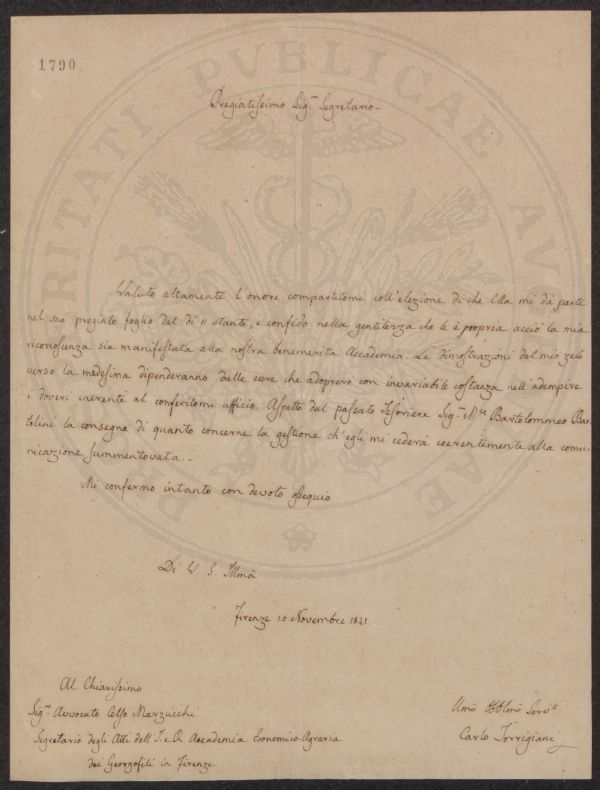 1790
Pregiatissimo Sig.re Segretario
Valuto altamente l'onore compartitomi coll'elezione di che Ella mi dà parte
nel suo pregiato foglio del dì 11 stante, e confido nella gentilezza che le è propria acciò la mia
reconoscenza sia manifestata alla nostra benemerita Accademia. Le dimostrazioni del mio zelo
verso la medesima dipenderanno dalle cure che adoprerò con invariabile costanza nell'adempire
i doveri inerente al conferitomi ufficio. Aspetto dal passato Tesoriere Sig.re M.se Bartolommeo Bar-
tolini la consegna di quanto concerne la gestione ch'egli mi cederà coerentemente alla comu-
nicazione summentovata.
Mi confermo intanto con devoto ossequio
Di V. S. Illma
Firenze Novembre 1841.
Al Chiarissimo
Sig.re Avvocato Celso Marzucchi
Segretario degli Atti dell'I. e R. Accademia Economico-Agraria
dei Georgofili in Firenze
Umo Obblmo Serv.e
Carlo Torrigiani
PVBLICAE